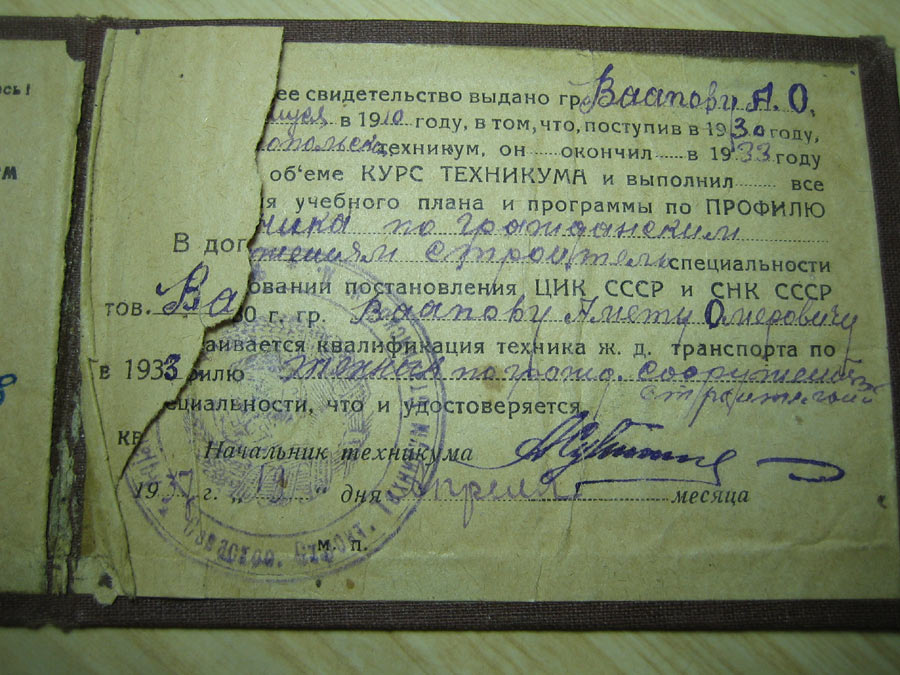 ось!
ее свидетельство выдано гр. Ваапову А. О.
в 1910 году, в том, что, поступив в 1930 году,
опольск. техникум, он окончил в 1933 году
об'еме КУРС ТЕХНИКУМА и выполнил все
ия учебного плана и программы по ПРОФИЛЮ
ника по гражданским
В дог
жениям строитель специальности
овании постановления ЦИК СССР и СНК СССР
тов. Ва
30 г. гр. Ваапову Амету Омеровичу
аивается квалификация техника ж. д. транспорта по
в 1933
филю техник по гражд. сооружений
строителей
ециальности, что и удостоверяется.
кв
Начальник техникума
19 г. „ 19 " дня апреля месяца
м. п.